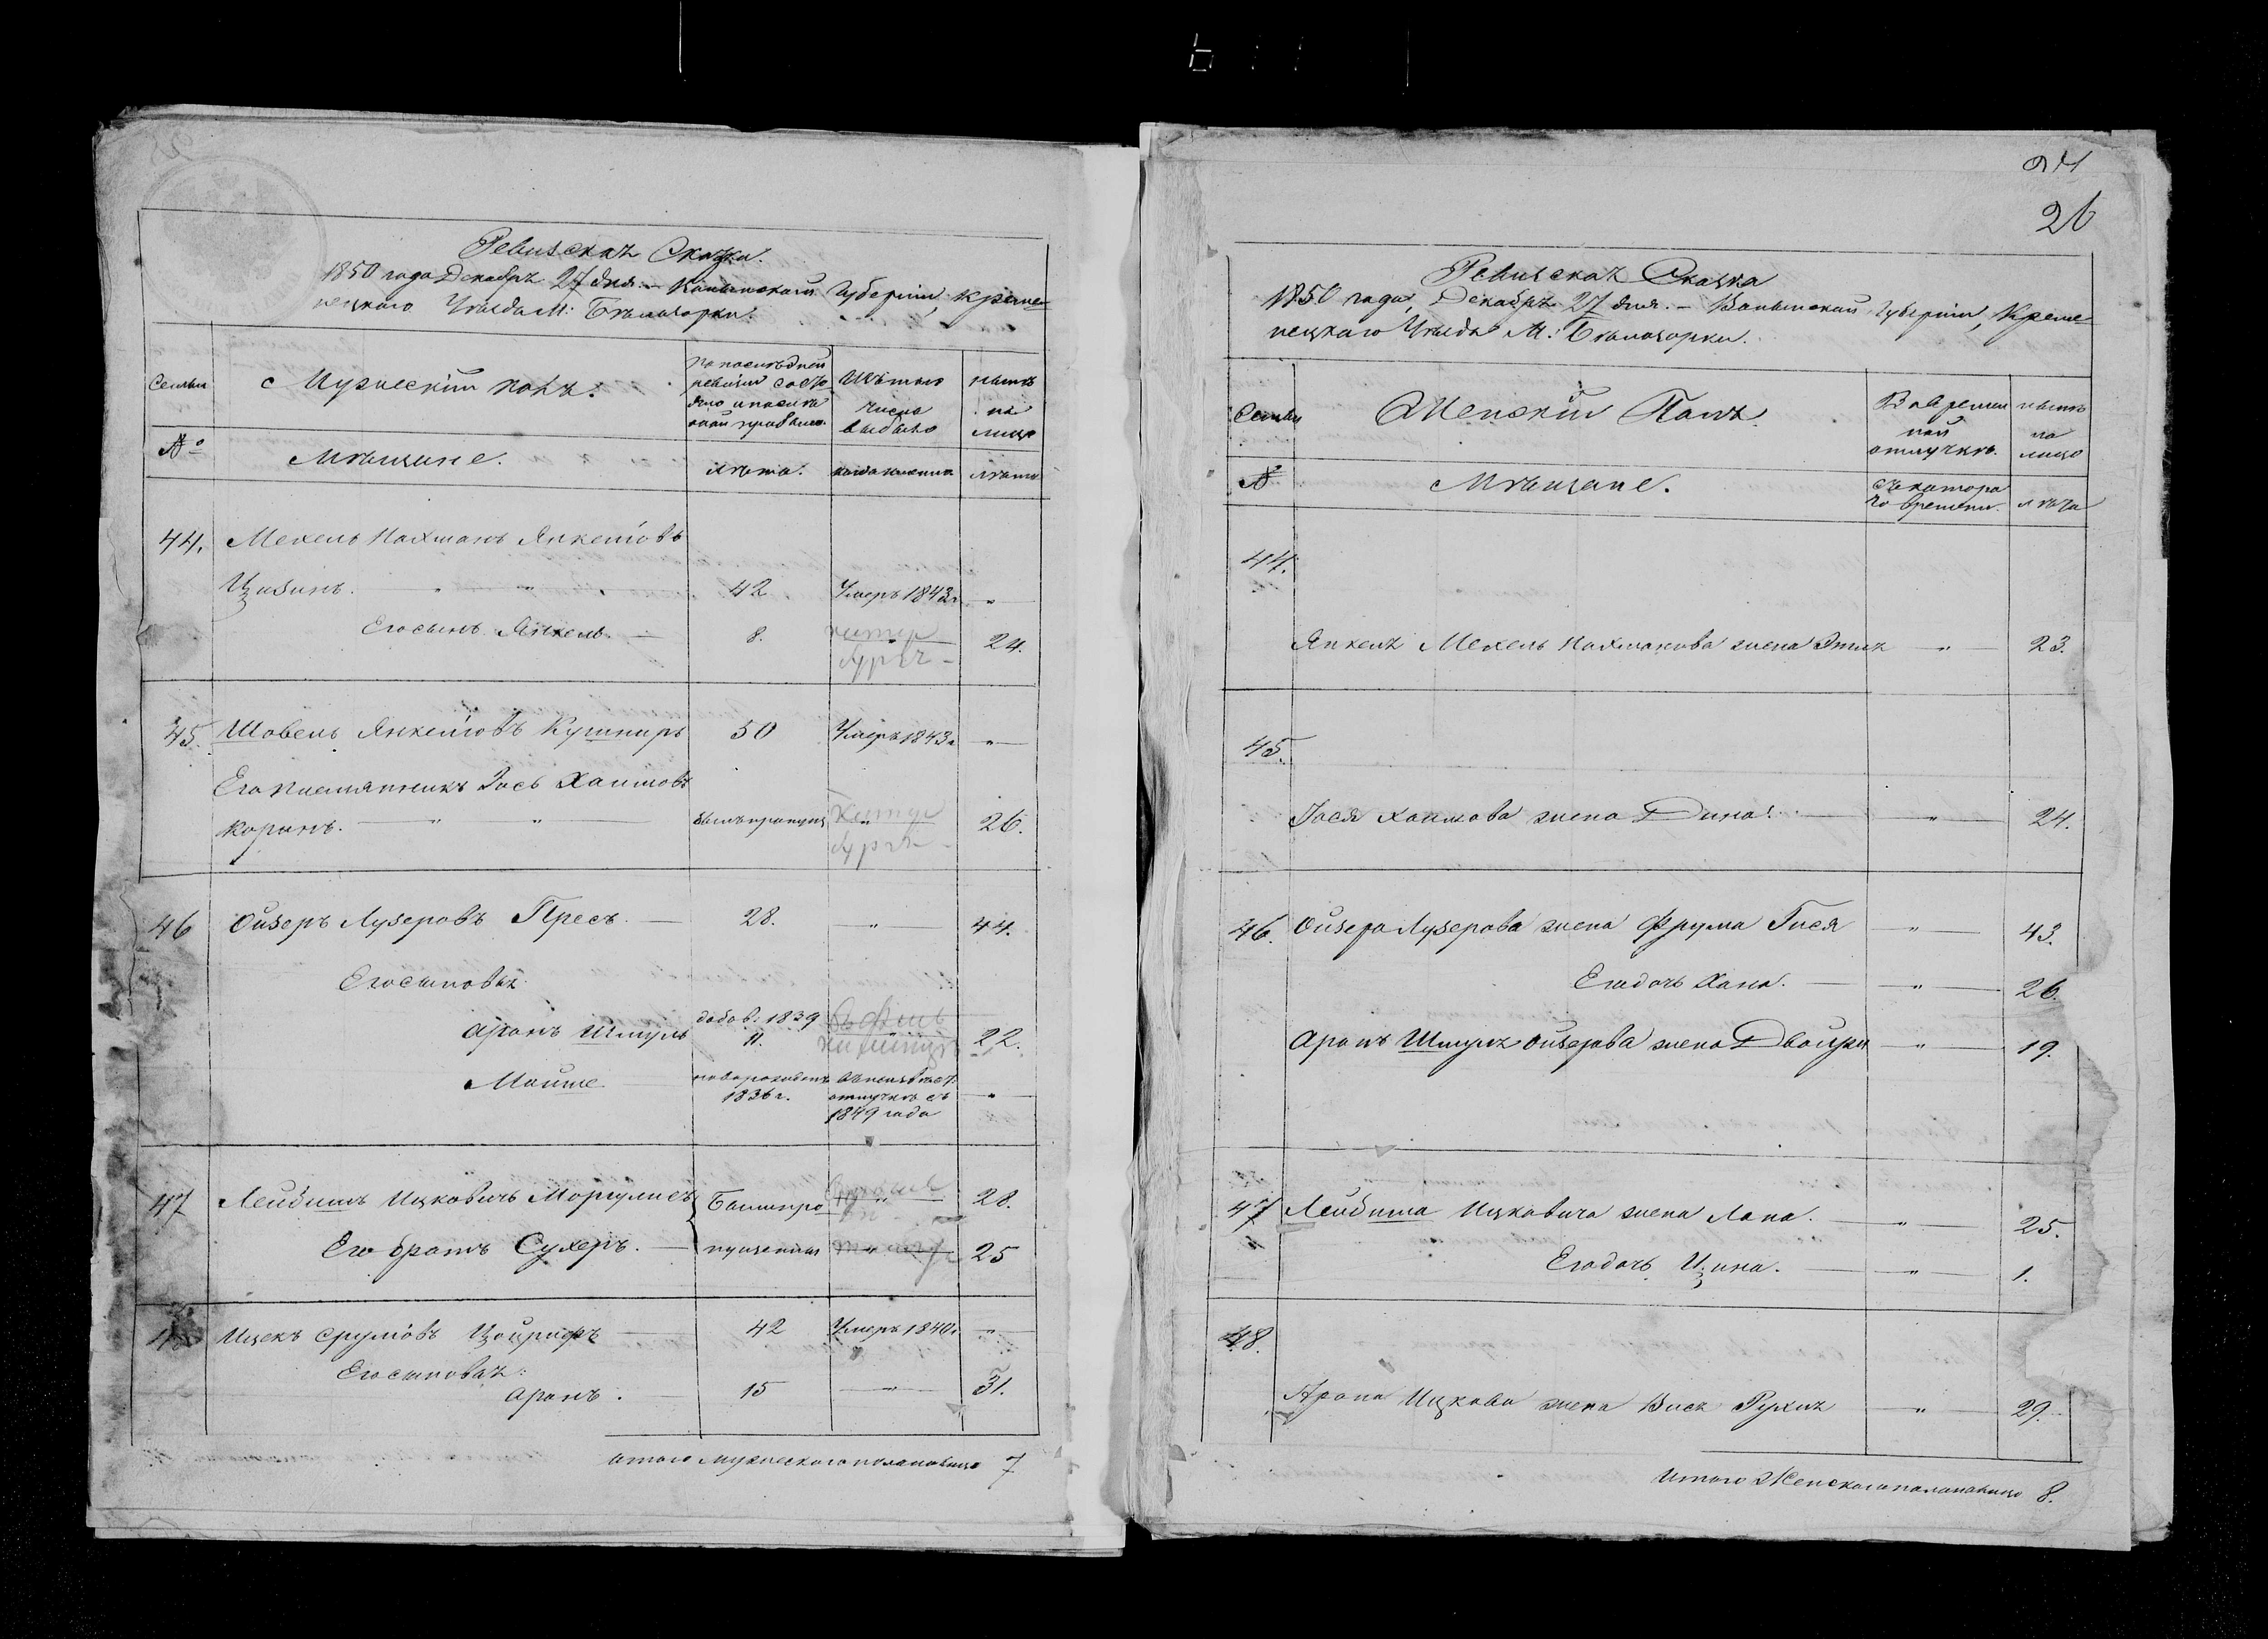 Ревизская Сказка.
1850 года Декабря 27 дня. – Волынской Губернiи, Креме-
нецкаго Уѣзда М: Бѣлозорки.
Семьи
Мужескiй полъ.
По послѣдней
ревизiи состо
яло и послѣ
оной прибыло.
Изъ того
числа
выбыло
нынѣ
на
лицо
№
Мѣщане.
лѣта.
когда именно
лѣта
44. Мехель Нахманъ Янкелiовъ
Цизинъ. 42 Умеръ 1843г. „
Его сынъ Янкель. 8. „ 24.
45. Шовель Янкелiовъ Кушниръ 50 Умеръ 1843г „
Его племянникъ Iось Хаимовъ
Коранъ. былъ пропущ „ 26.
46 Ойзеръ Лузеровъ Пресъ 28. „ 44.
Его сыновья
Аронъ Шмуль добав: 1839 11. 22.
Мойше новорожденъ 1836 г. въ неизвѣст: отлучкѣ съ 1849 года „
47 Лейбишъ Ицковичъ Моргулисъ Былъ про „ 28.
Его братъ Сухеръ. пущенны „ 25
48 Ицекъ Срулiовъ Цоурифъ 42 Умеръ 1840г „
Его сыновья:
Аронъ. 15 „ 31.
итого мужескаго пола налицо 7
24
26
Ревизская Сказка
1850 года, Декабря 27 дня. – Волынской Губернiи, Креме-
нецкаго Уѣзда М: Бѣлозорки.
Семьи
Женскiй Полъ.
Во времен
ной
отлучкѣ.
нынѣ
на
лицо
№
Мѣщане.
съ котора
го времени.
лѣта
44.
Янкеля Мехель Нахманова жена Этля „ 23.
45.
Iося Хаимова жена Дина. „ 24.
46. Ойзера Лузерова жена Фрума Гися „ 43.
Его дочь Хана. „ 26.
Аронъ Шмуля Ойзерова жена Двойра „ 19.
47 Лейбиша Ицковича жена Лана. „ 25.
Его дочь Цина. „ 1.
48.
Арона Ицкова жена Вися Рухля „ 29.
итого Женскаго пола налицо 8.